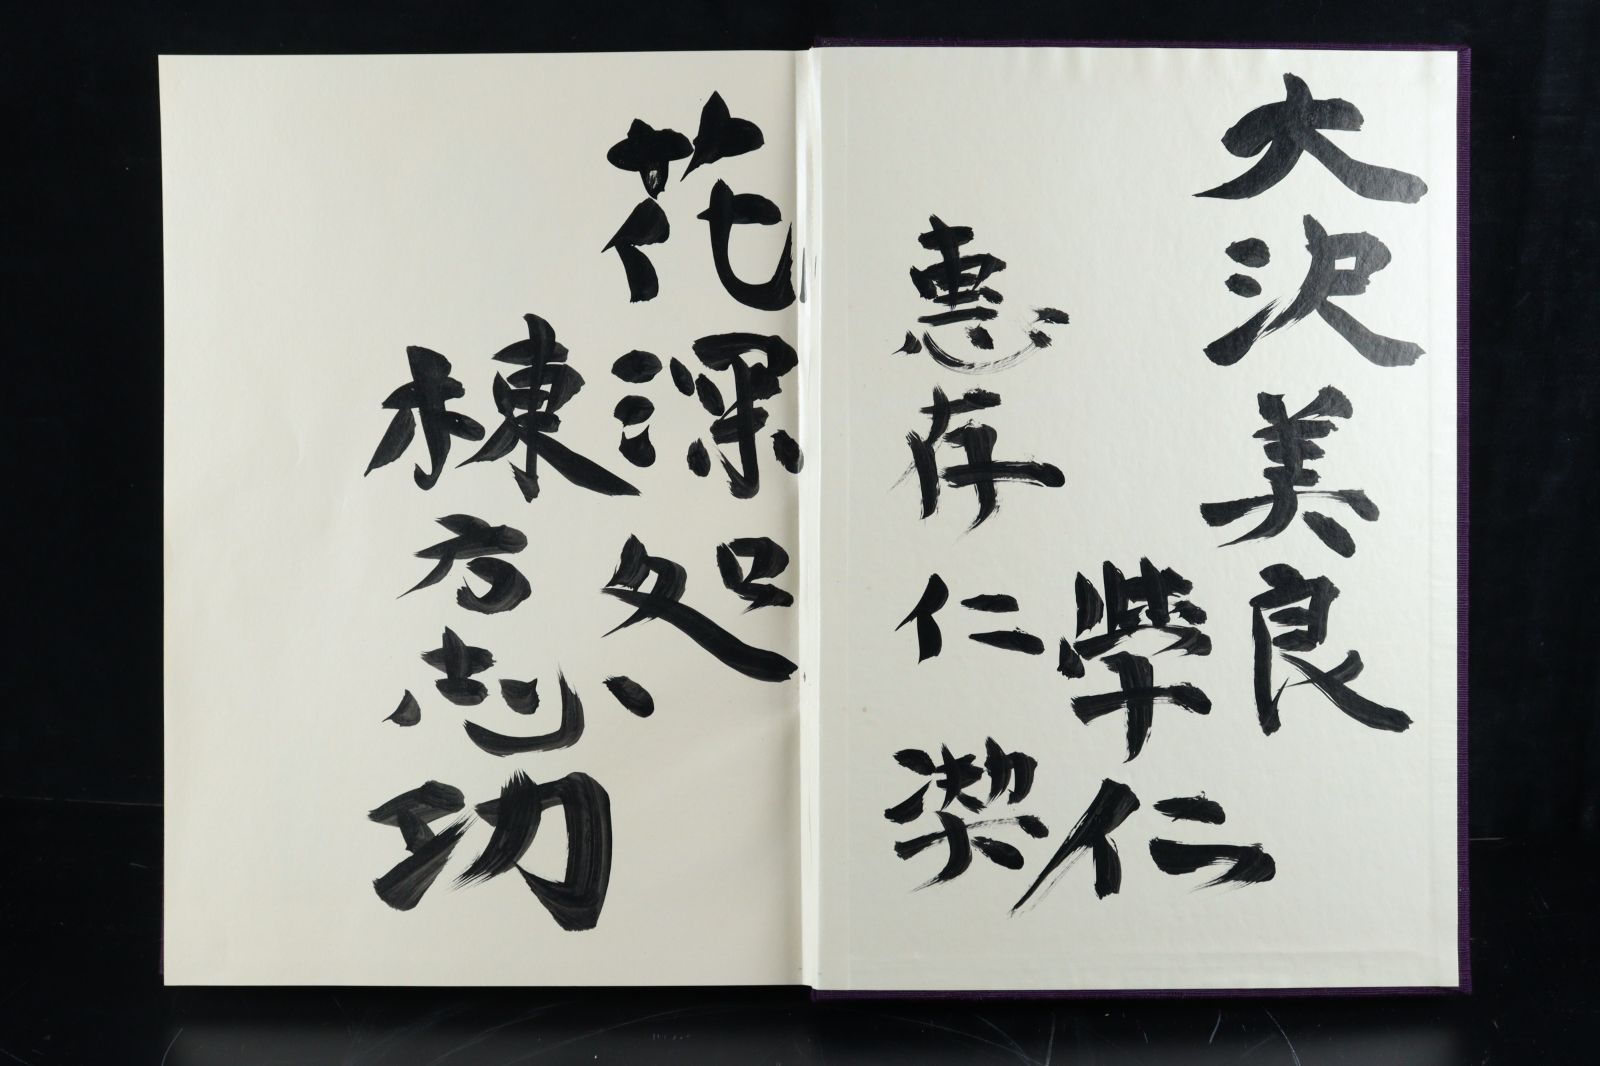 大沢美良
学仁
惠存
仁
花深処、
棟方志功